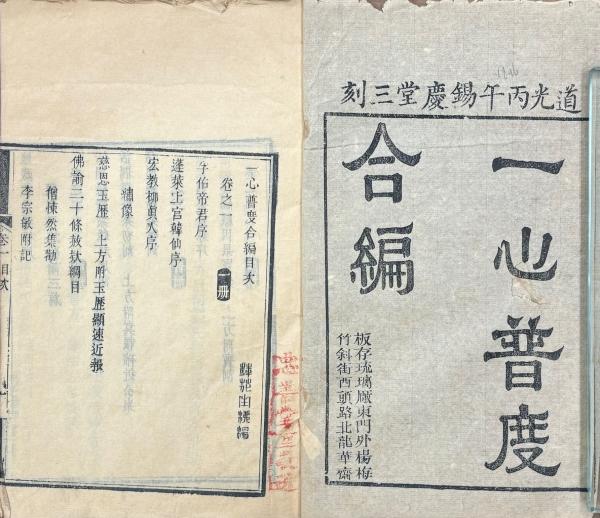 道光丙午錫慶堂三刻
一心普度
合編
板存琉璃厰東門外楊梅
竹斜街西頭路北龍華齋
1846
一心普度合編目次
卷之一
一册
孚佑帝君序
蓬萊上宫韓仙序
宏教柳眞人序
繡像
慈恩玉歷
上方附玉歷顯速近報
佛諭三十條赦欵綱目
僧悚然集勸
李宗敏附記
卷一目次